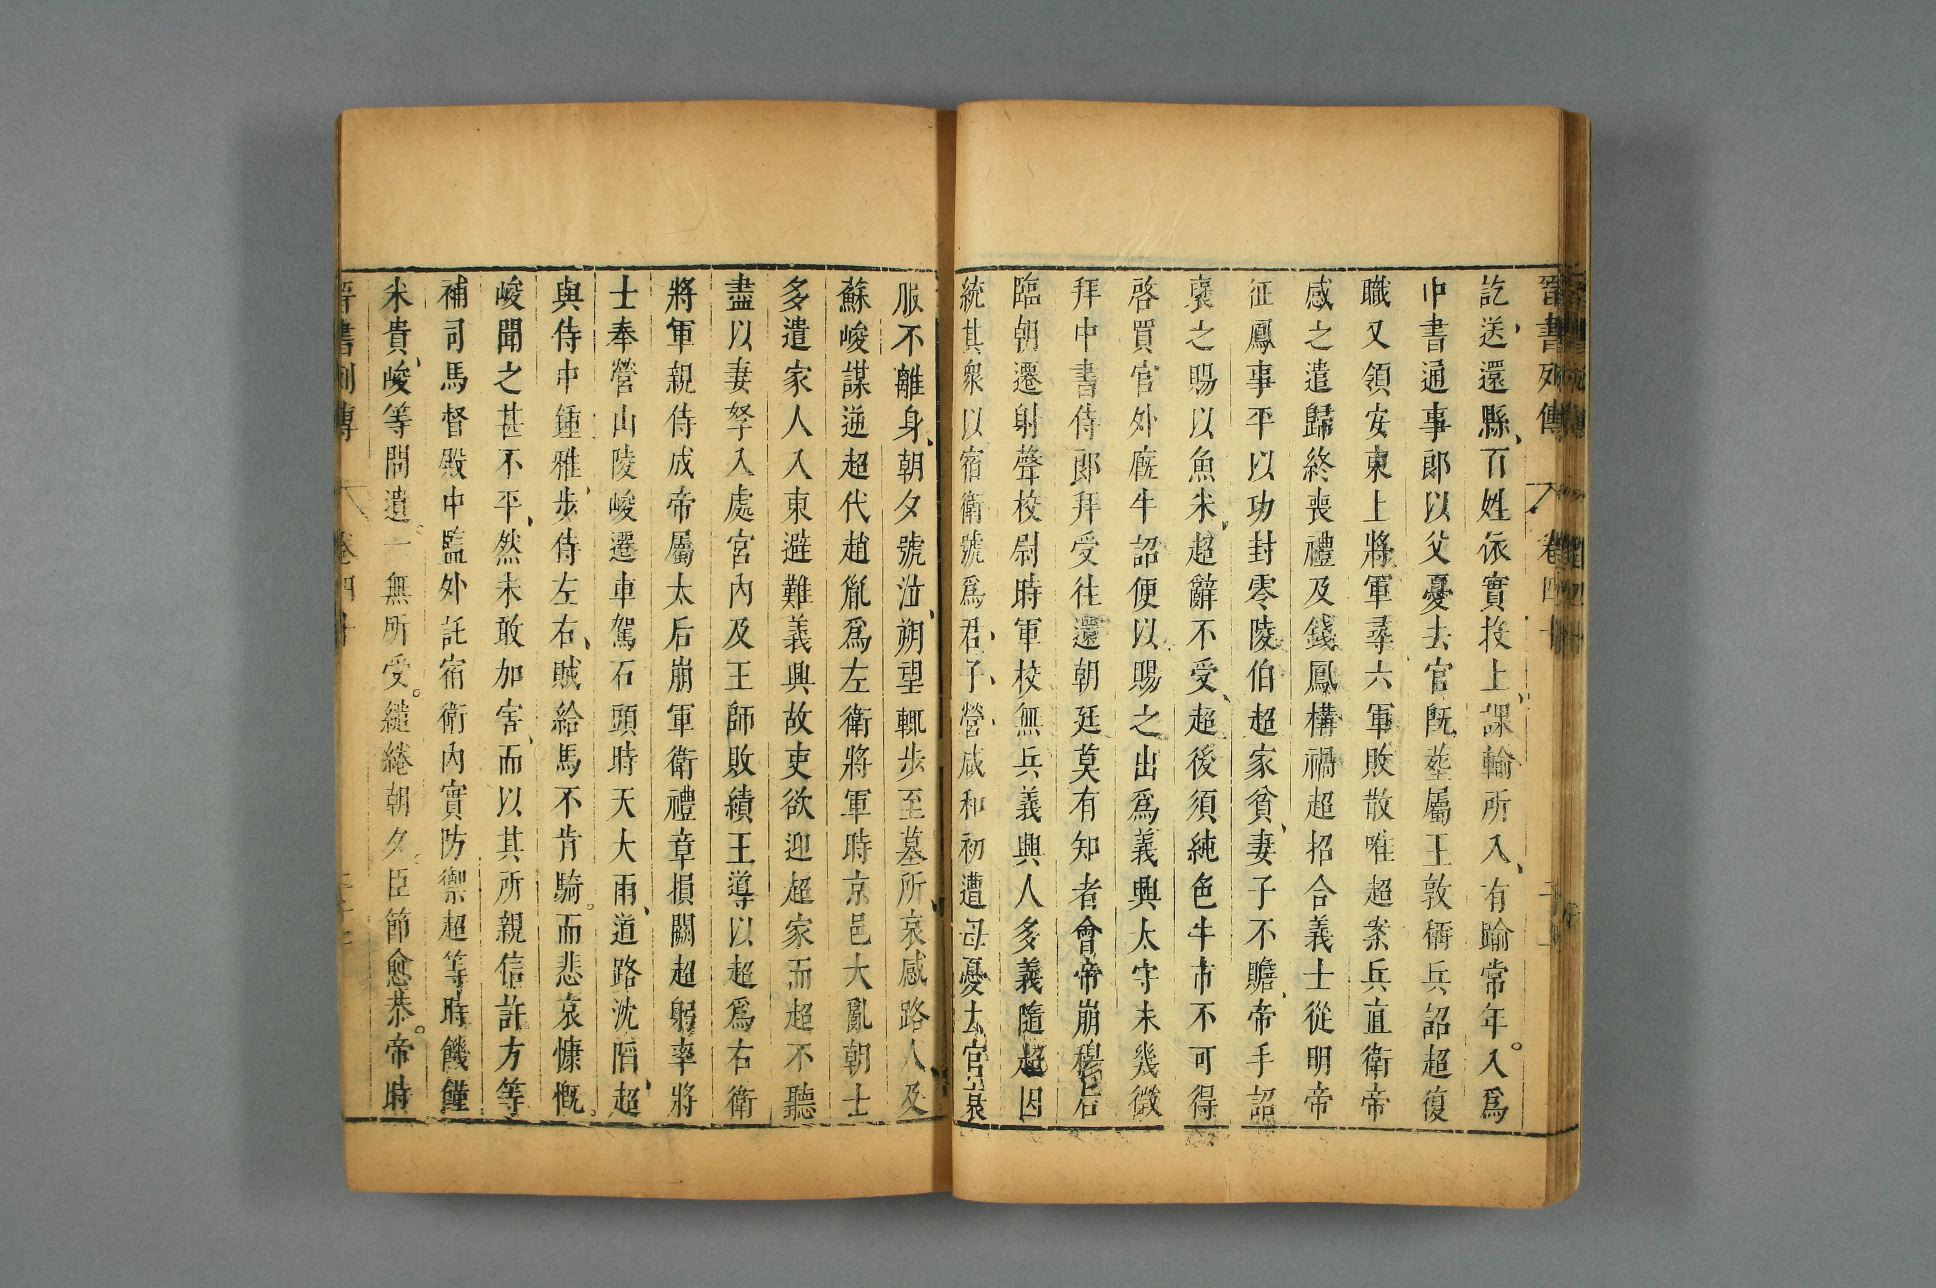 晉書列傳 卷四十
訖送還縣百姓依實投上課輸所入有踰常年入爲
中書通事郎以父憂去官旣葬屬王敦稱兵詔超復
職又領安東上將軍尋六軍敗散唯超案兵直衛帝
感之遣歸終喪禮及錢鳳構禍超招合義士從明帝
征鳳事平以功封零陵伯超家貧妻子不贍帝手詔
襃之賜以魚米超辭不受超後須純色牛市不可得
啓買官外廐牛詔便以賜之出爲義興太守未幾徵
拜中書侍郎拜受往還朝廷莫有知者會帝崩穆后
臨朝遷射聲校尉時軍校無兵義興人多義隨超因
統其衆以宿衛號爲君子營咸和初遭母憂去官衰
服不離身朝夕號泣朔望輒步至墓所哀感路人及
蘇峻謀逆超代趙胤爲左衛將軍時京邑大亂朝士
多遣家人入東避難義興故吏欲迎超家而超不聽
盡以妻孥入處宮內及王師敗績王導以超爲右衛
將軍親侍成帝屬太后崩軍衛禮章損闕超躬率將
士奉營山陵峻遷車駕石頭時天大雨道路沈陷超
與侍中鍾雅步侍左右賊給馬不肯騎而悲哀慷慨
峻聞之甚不平然未敢加害而以其所親信許方等
補司馬督殿中監外託宿衛內實防禦超等時饑饉
米貴峻等問遺一無所受繾綣朝夕臣節愈恭帝時
晉書列傳 卷四十